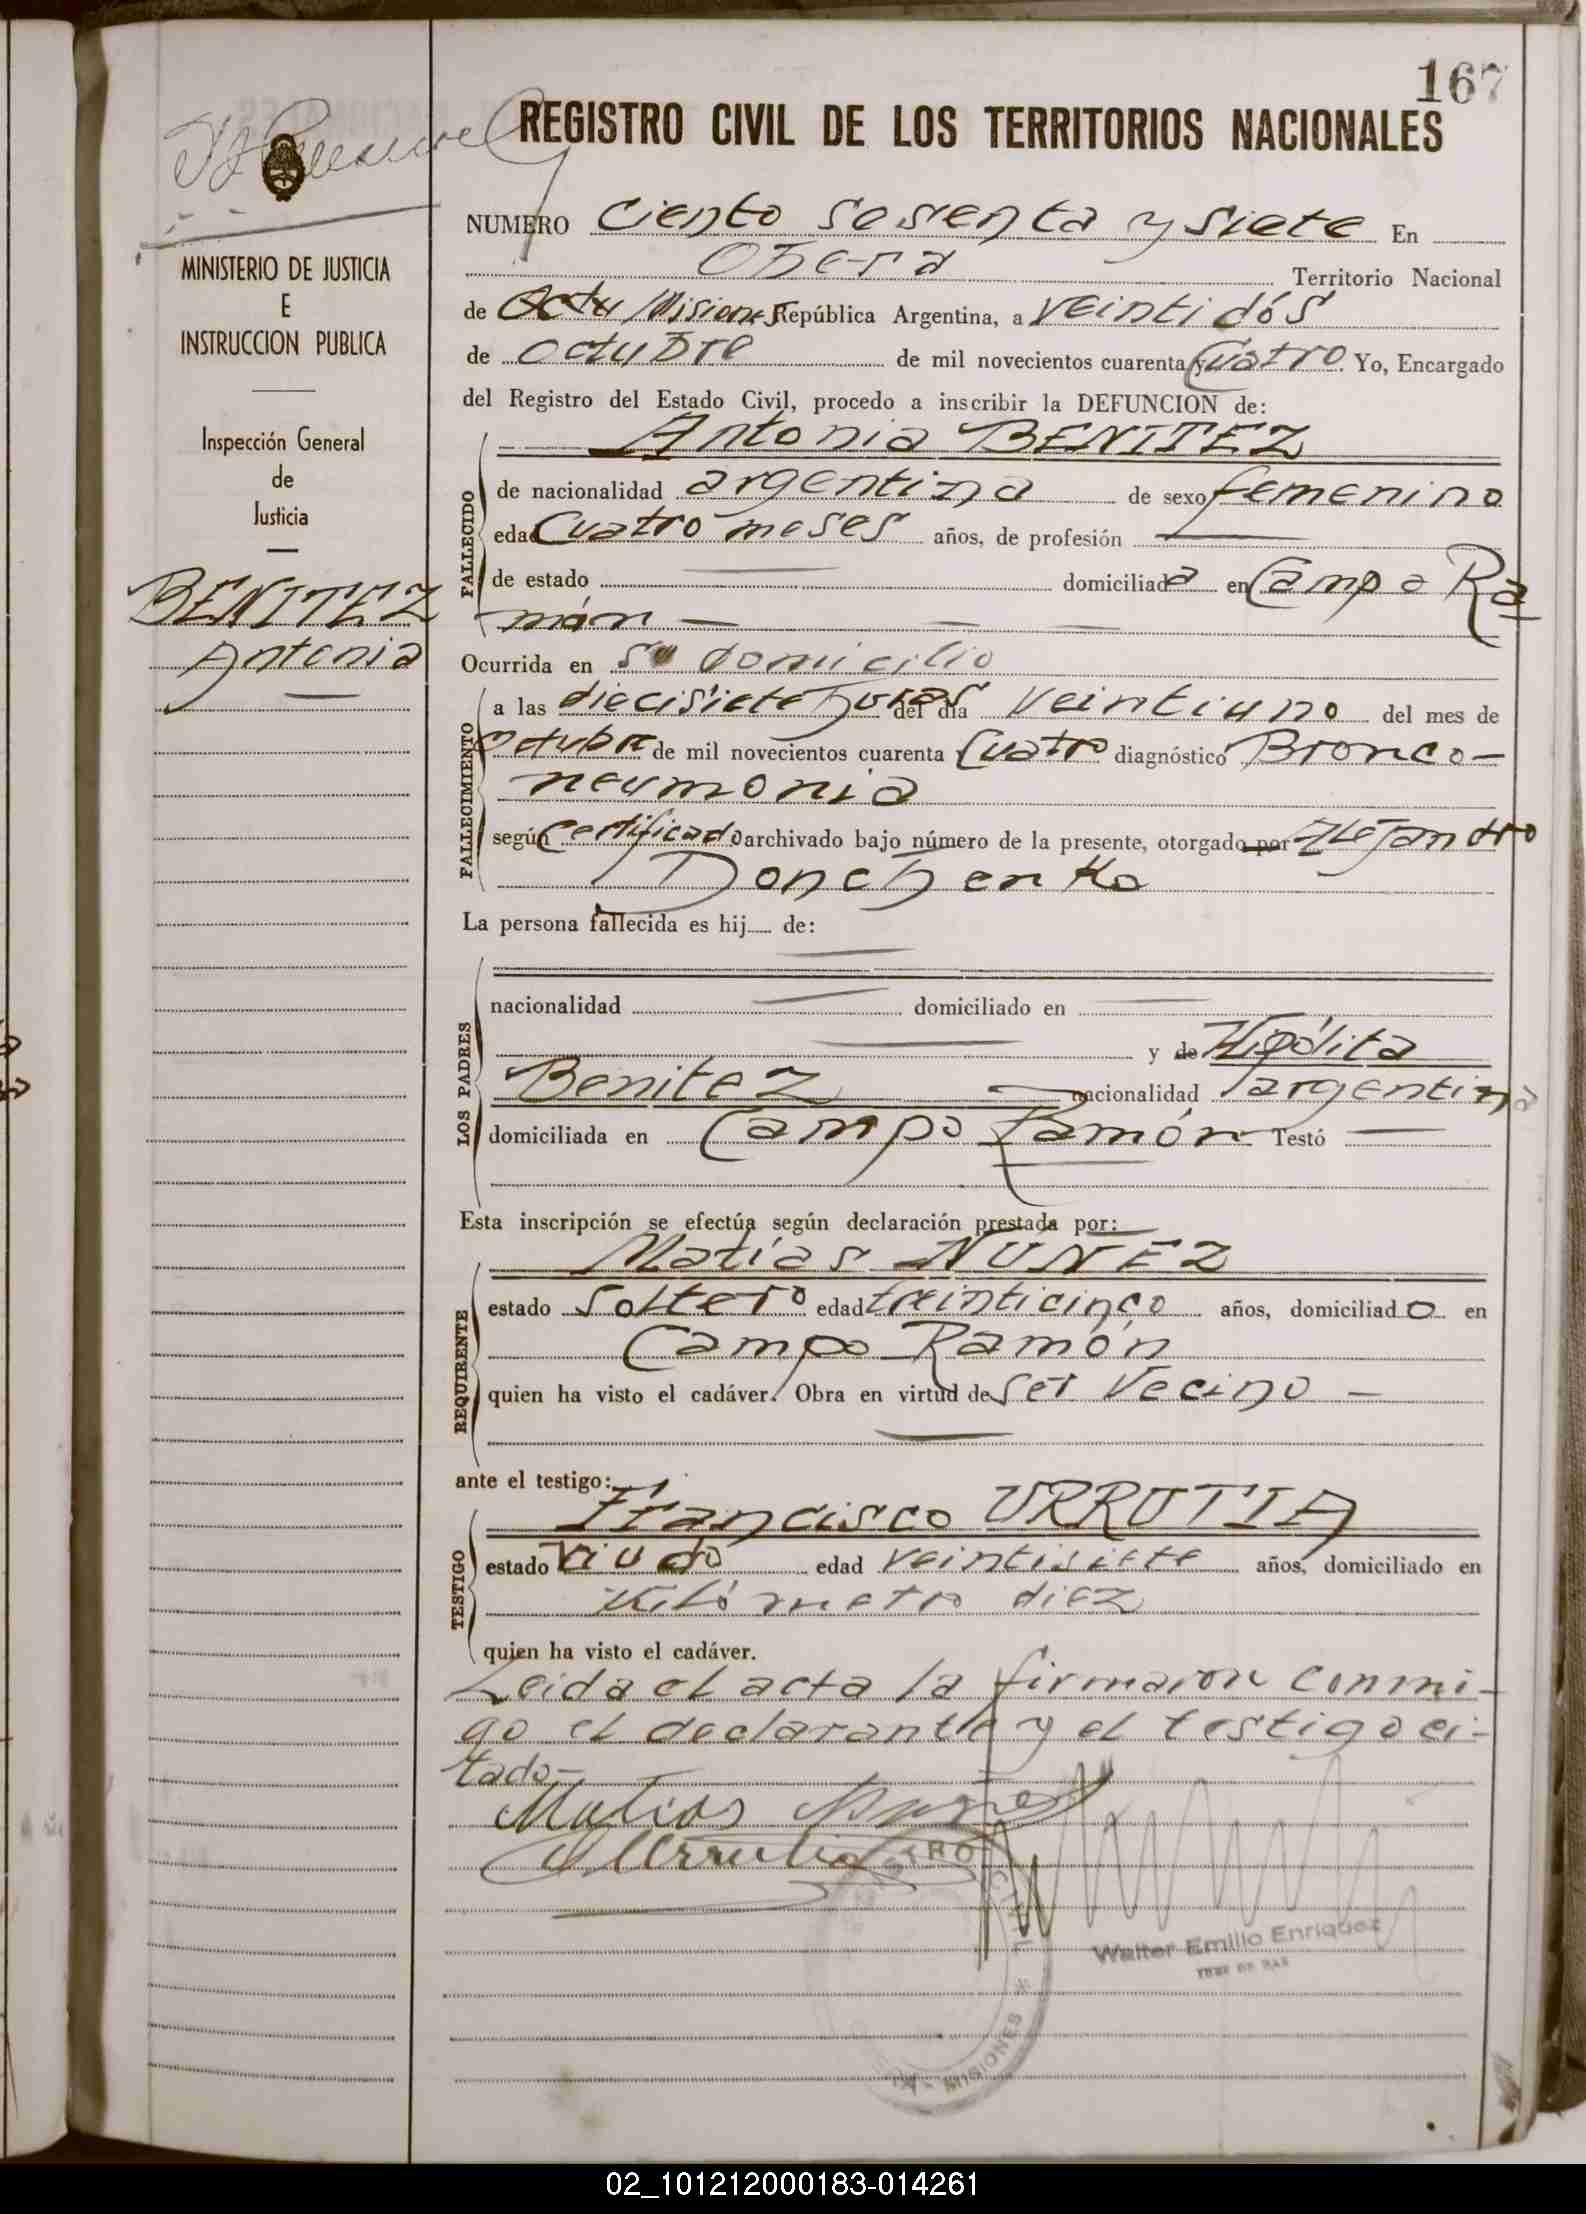 167
REGISTRO CIVIL DE LOS TERRITORIOS NACIONALES
MINISTERIO DE JUSTICIA
E
INSTRUCCION PUBLICA
Inspección General
de
Justicia
BENITEZ
Antonia
NUMERO ciento sesenta y siete En
Oberá Territorio Nacional
de Octu Misiones República Argentina, a veintidós
de octubre de mil novecientos cuarenta y cuatro. Yo, Encargado
del Registro del Estado Civil, procedo a inscribir la DEFUNCION de:
Antonia BENITEZ
FALLECIDO
de nacionalidad argentina de sexo femenino
edad cuatro meses años, de profesión —
de estado — domiciliada en Campo Ra
món —
Ocurrida en su domicilio
FALLECIMIENTO
a las diecisiete horas del día veintiuno del mes de
octubre de mil novecientos cuarenta cuatro diagnóstico Bronco-
neumonia
según certificado archivado bajo número de la presente, otorgado por Alejandro
Donchenko
La persona fallecida es hij..... de:
LOS PADRES
nacionalidad — domiciliado en —
— y de Hipólita
Benitez nacionalidad argentina
domiciliada en Campo Ramón Testó —
Esta inscripción se efectúa según declaración prestada por:
Matías NUÑEZ
REQUIRENTE
estado soltero edad treinticinco años, domiciliado en
Campo Ramón
quien ha visto el cadáver. Obra en virtud de ser vecino —
ante el testigo:
Francisco URRUTIA
TESTIGO
estado viudo edad veintisiete años, domiciliado en
Kilómetro diez
quien ha visto el cadáver.
Leida el acta la firmaron conmi-
go el declarante y el testigo ci-
tado-
Matias Nuñez
Urrutia
REGISTRO CIVIL
MISIONES
Walter Emilio Enriquez
02_101212000183-014261